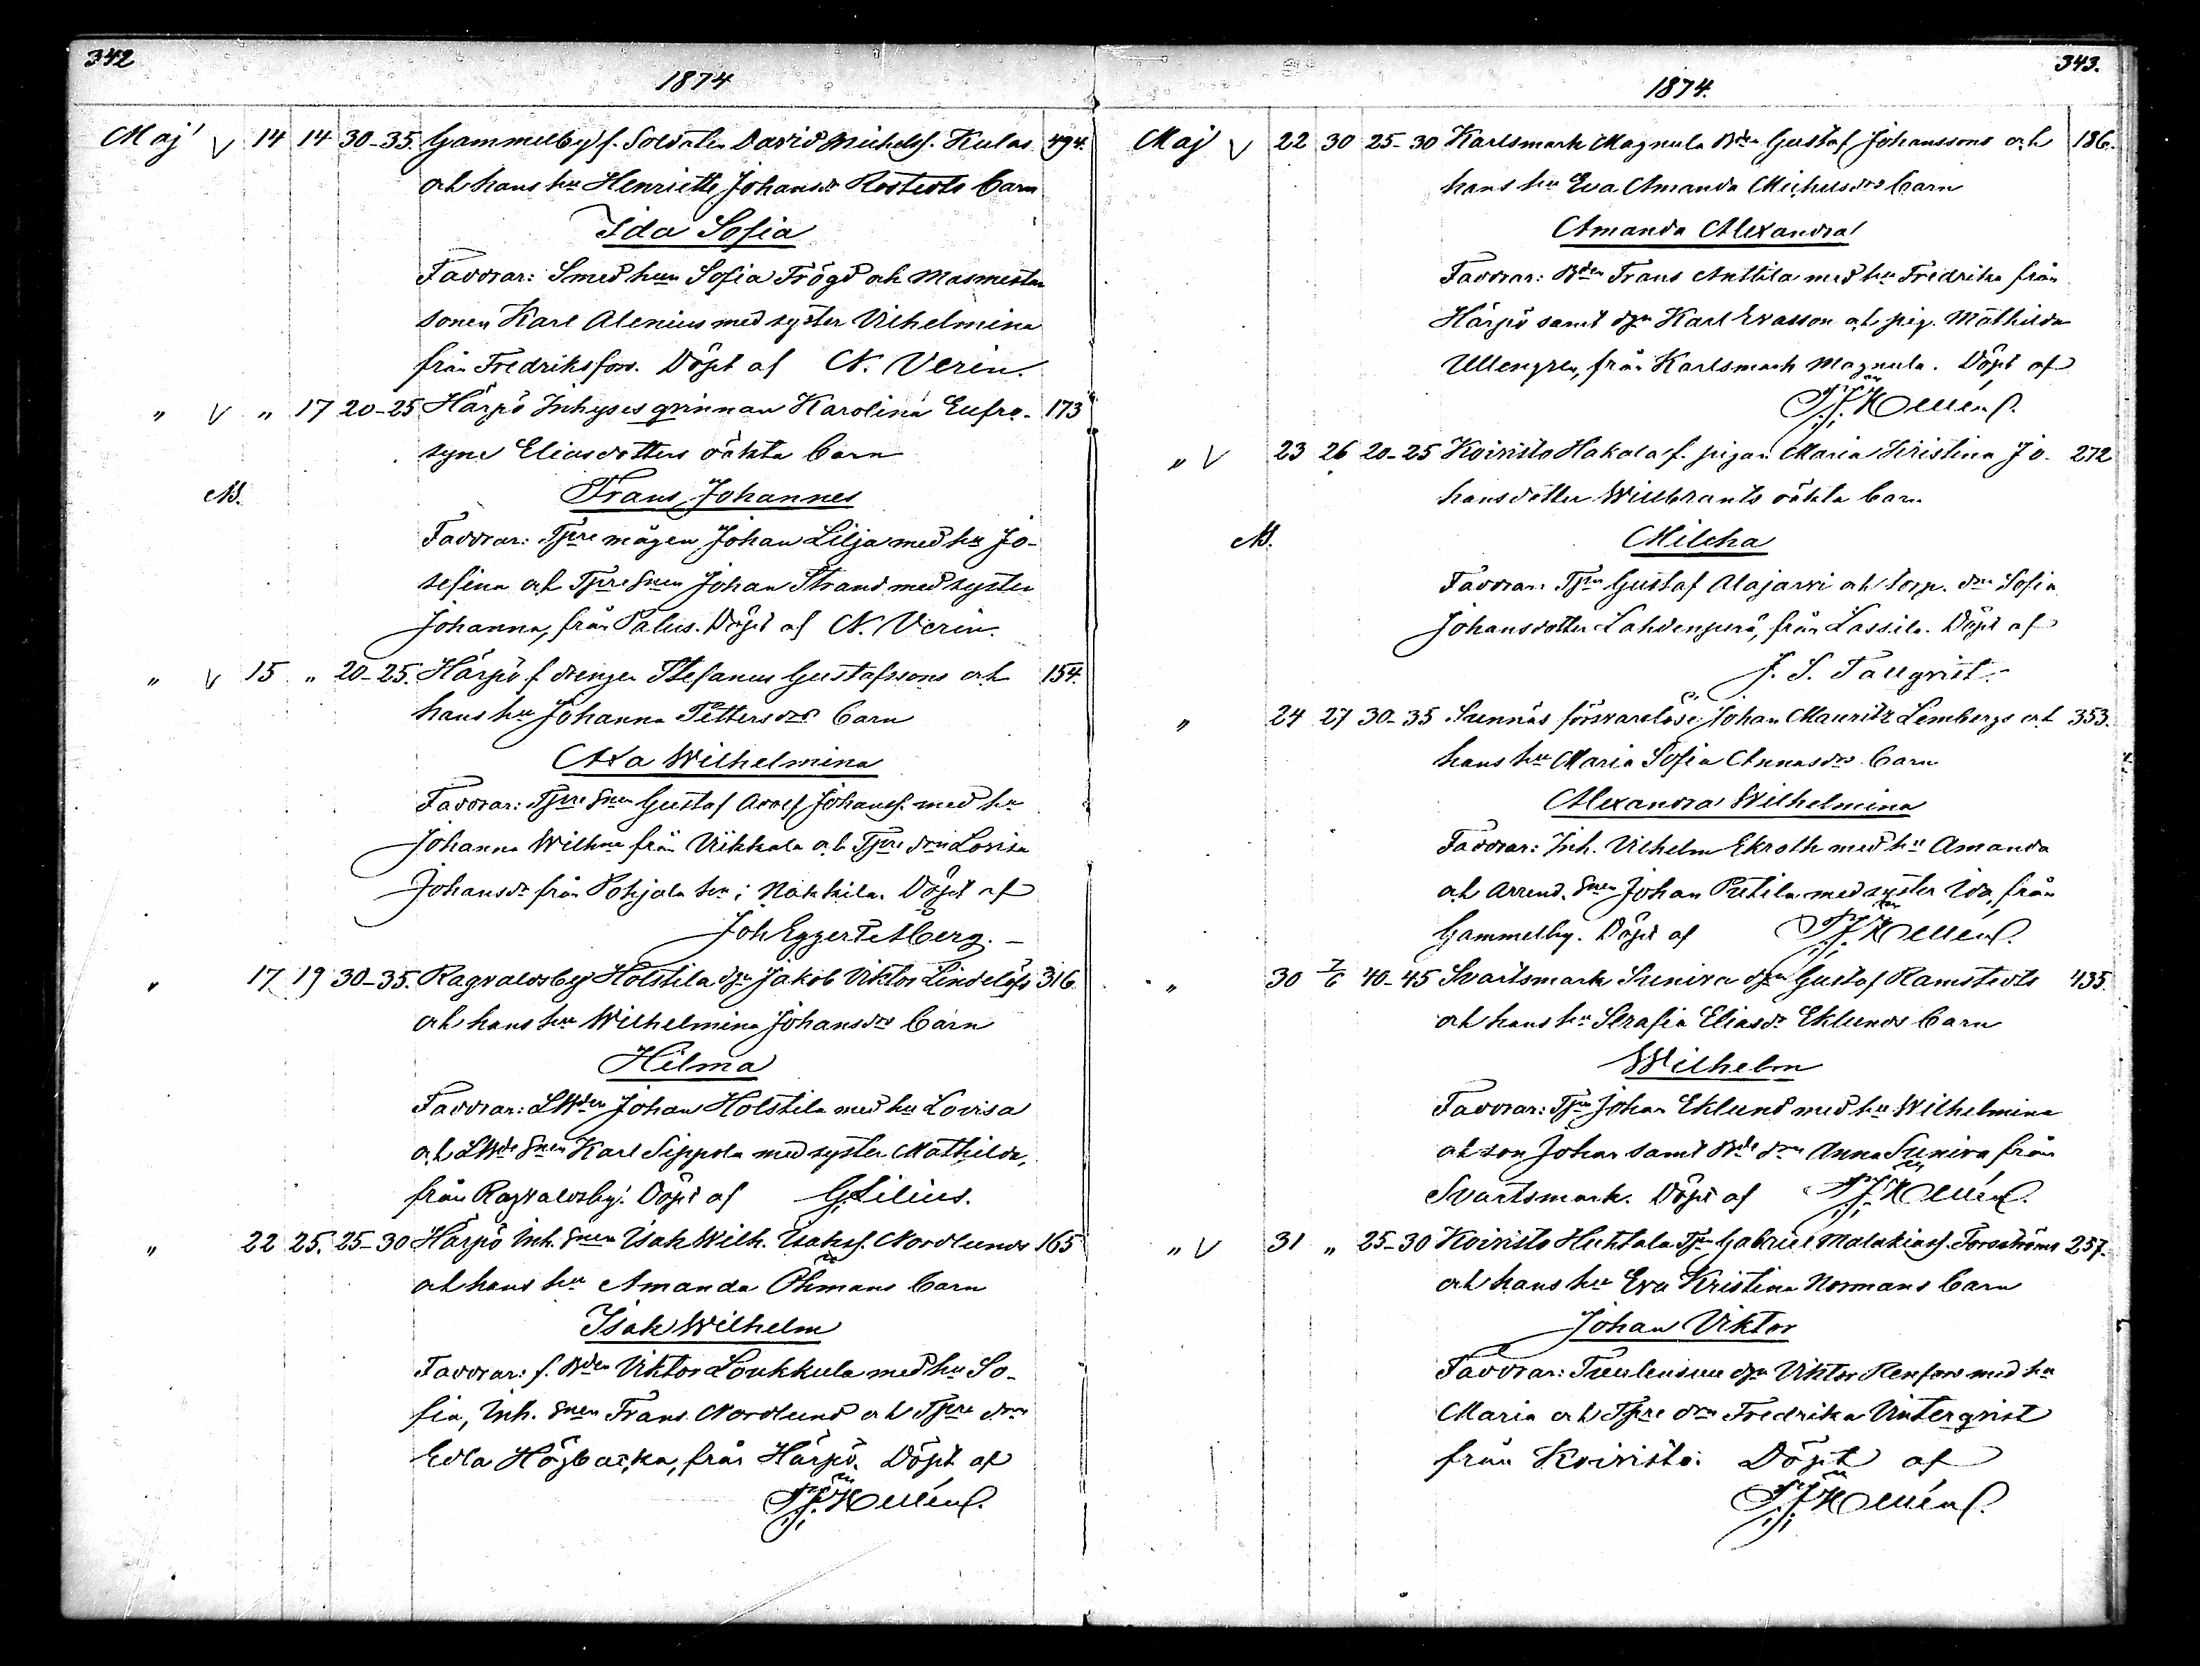 342
1874
Maj V 14 14 30-35. Gammelby f. Soldaten David Michelsf. Kulas 494.
och hans hu Henriette Johansdr Rostedts barn
Ida Sofia
Faddrar: Smed hun Sofia Frögd och Masmestar
sonen Karl Alenius med syster Vilhelmina
från Fredriksfors. Döpt af N. Verin.
" V " 17 20-25 Härpö Inhyses qvinnan Karolina Eufro- 173
syne Eliasdotters oäkta barn
NB. Frans Johannes
Faddrar: Tpre mågen Johan Lilja med hu Jo-
sefina och Tpre Snen Johan Strand med syster
Johanna, från Palus. Döpt af N. Verin.
" V 15 " 20-25. Härpö f drengen Stefanus Gustafssons och 154.
hans hu Johanna Pettersdrs barn
Axa Wilhelmina
Faddrar: Tpre Snen Gustaf Adolf Johansf. med hu
Johanna Wilhna från Viikkala och Tpre drn Lovisa
Johansdr från Pohjala hn i Nakkila. Döpt af
Joh Eggert Åberg. -
" 17 19 30-35. Ragvaldsby Holstila dgn Jakob Viktor Lindelöfs 316.
och hans hu Wilhelmina Johansdrs barn
Hilma
Faddrar: LBden Johan Holstila med hu Lovisa
och LBde Snen Karl Sippola med syster Mathilda,
från Ragvaldsby. Döpt af G. Lilius.
" 22 25. 25-30 Härpö Inh. Snen Isak Wilh. Isaksf. Nordlunds 165
och hans hu Amanda Öhmans barn
Isak Wilhelm
Faddrar: f. Bden Viktor Loukkula med hu So-
fia, Inh. Snen Frans Nordlund och Tpre drn
Edla Högbacka, från Härpö. Döpt af
343.
1874.
Maj V 22 30 25-30 Karlsmark Magnula Bden Gustaf Johanssons och 186.
hans hu Eva Amanda Michelsdrs barn
Amanda Alexandra
Faddrar: Bden Frans Anttila med hu Fredrika från
Härpö samt dgn Karl Evasson och pig. Mathilda
Ullengren, från Karlsmark Magnula. Döpt af
" V 23 26 20-25 Koivisto Hakala f. pigan Maria Kristina Jo- 272
hansdotter Willbrants oäkta barn
NB. Milcha
Faddrar: Tprn Gustaf Alajarvi och torp. drn Sofia
Johansdotter Lahdenperä, från Lassila. Döpt af
J. S. Tallqvist.
" 24 27 30-35 Sunnäs försvarslöse Johan Mauritz Lembergs och 353.
hans hu Maria Sofia Annasdrs barn
Alexandra Wilhelmina
Faddrar: Inh. Vilhelm Ekroth med hu Amanda
och Arrend. Snen Johan Pietila med syster Ida, från
Gammelby. Döpt af
" 30 2/6 40-45 Svartsmark Sunira dgn Gustaf Ramstedts 435.
och hans hu Serafia Eliasdr Eklunds barn
Wilhelm
Faddrar: Tprn Johan Eklund med hu Wilhelmina
och son Johan samt Bde drn Anna Sunira från
Svartsmark. Döpt af
" V 31 " 25-30 Koivisto Huhtala Tprn Gabriel Malakiasf. Forsströms 257.
och hans hu Eva Kristina Normans barn
Johan Viktor
Faddrar: dgn Viktor Renfors med hu
Maria och Tpre drn Fredrika Vinterqvist
från Koivisto. Döpt af